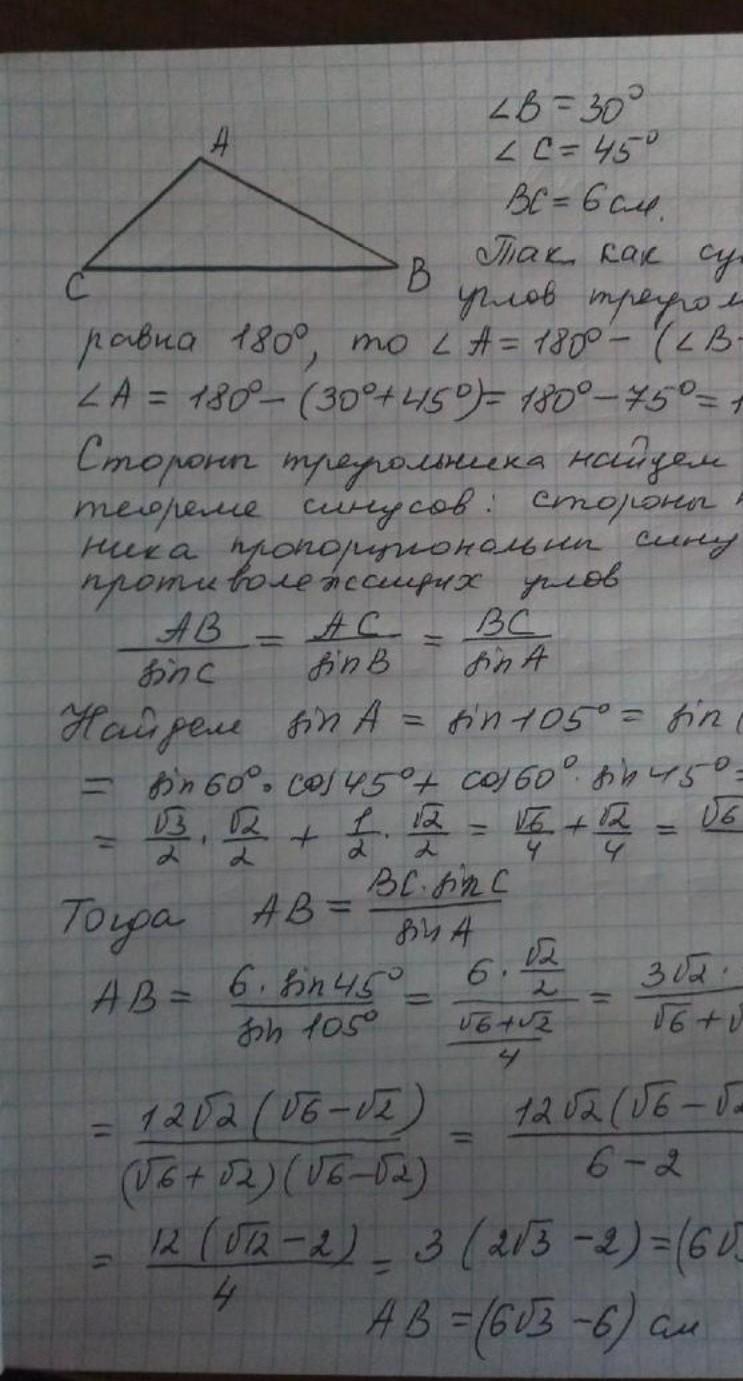 A
C
B
∠B = 30°
∠C = 45°
BC = 6 см.
Так как су
углов треугол
равна 180°, то ∠A = 180° - (∠B
∠A = 180° - (30° + 45°) = 180° - 75° = 1
Стороны треугольника найдем
теореме синусов: стороны
ника пропорциональны сину
противолежащих углов
AB/sinC = AC/sinB = BC/sinA
Найдем sinA = sin105° = sin(
= sin60° · cos45° + cos60° · sin45° =
= √3/2 · √2/2 + 1/2 · √2/2 = √6/4 + √2/4 = √6
Тогда AB = BC · sinC / sinA
AB = 6 · sin45° / sin105° = (6 · √2/2) / ((√6+√2)/4) = 3√2 · / √6 + √
= 12√2(√6 - √2) / (√6 + √2)(√6 - √2) = 12√2(√6 - √2 / 6 - 2
= 12(√12 - 2) / 4 = 3(2√3 - 2) = (6√3
AB = (6√3 - 6) см